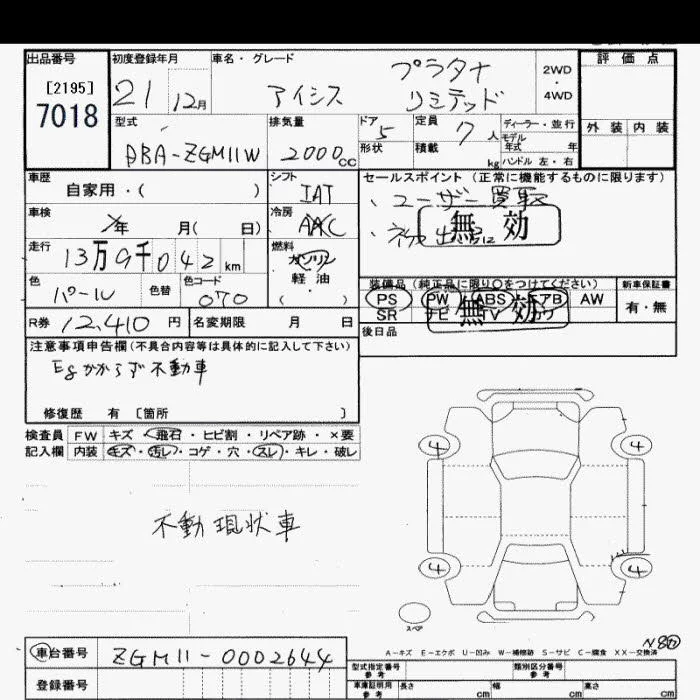 出品番号
[2195]
7018
初度登録年月
21 12月
車名・グレード
アイシス プラタナ リミテッド
2WD
・
4WD
評価点
外装 内装
型式
DBA-ZGM11W
排気量
2000cc
ドア
5
形状
定員
7人
積載
kg
ディーラー・並行
モデル
年式 年
ハンドル 左・右
車歴
自家用・( )
シフト
IAT
セールスポイント (正常に機能するものに限ります)
・ユーザー買取
無効
車検
年 月( 日)
冷房
AAC
走行
13万9千042km
燃料
ガソリン
軽油
・
( )
色
パール
色替
色コード
070
装備品 (純正品に限り○をつけてください)
PS PW ABS エアB AW
SR ナビ TV カワ
無効
新車保証書
有・無
R券 12,410円
名変期限 月 日
後日品
注意事項申告欄(不具合内容等は具体的に記入して下さい)
Egかからず不動車
修復歴 有 [箇所 ]
検査員 FW キズ・飛石・ヒビ割・リペア跡・×要
記入欄 内装 キズ・汚レ・コゲ・穴・スレ・キレ・破レ
不動現状車
4 4
4 4
スペア
A-キズ E-エクボ U-凹み W-補修跡 S-サビ C-腐食 XX-交換済
車台番号 ZGM11-0002644
登録番号
型式指定番号
参考
類別区分番号
参考
車庫証明用
参考
長さ cm 幅 cm 高さ cm